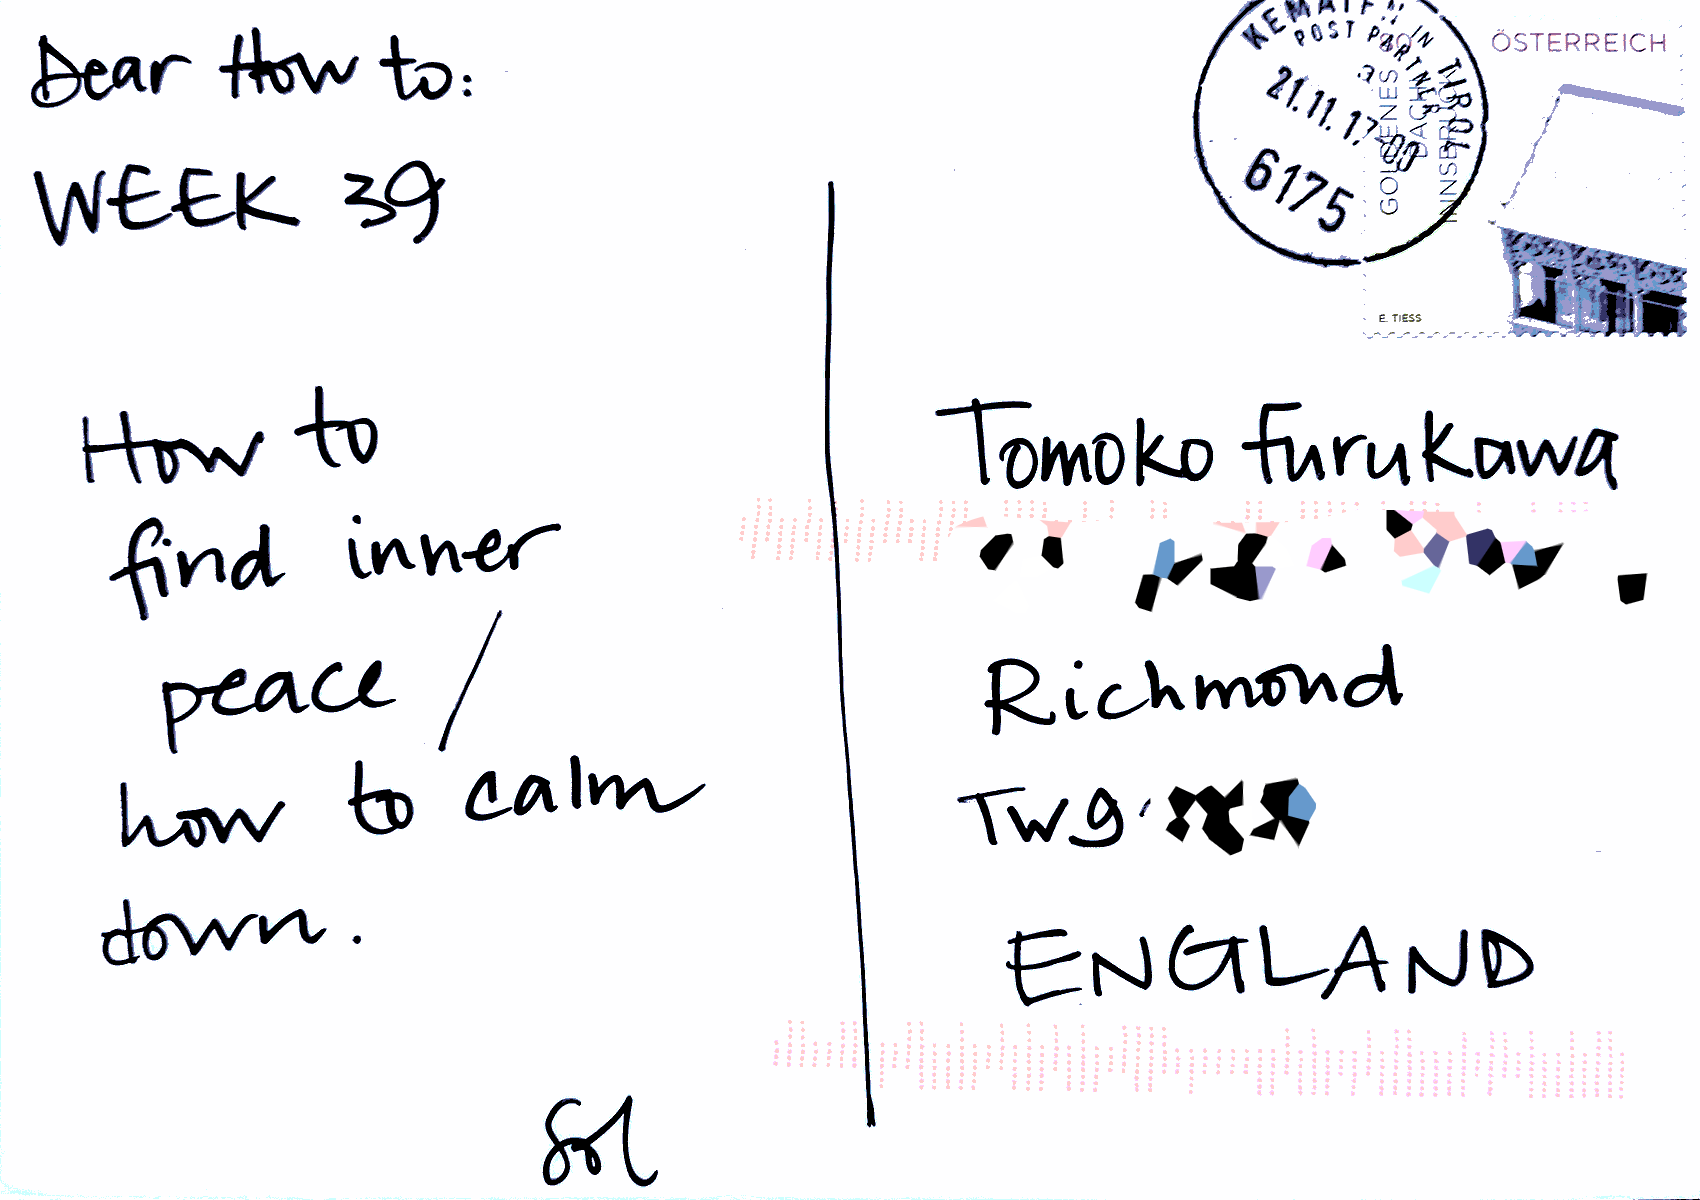 Dear How to:
WEEK 39
How to
find inner
peace /
how to calm
down.
Sol
KEMATEN IN TIROL
POST PARTNER
21.11.17
6175
ÖSTERREICH
GOLDENES
DACHL
INNSBRUCK
E. TIESS
Tomoko Furukawa
Richmond
TW9
ENGLAND